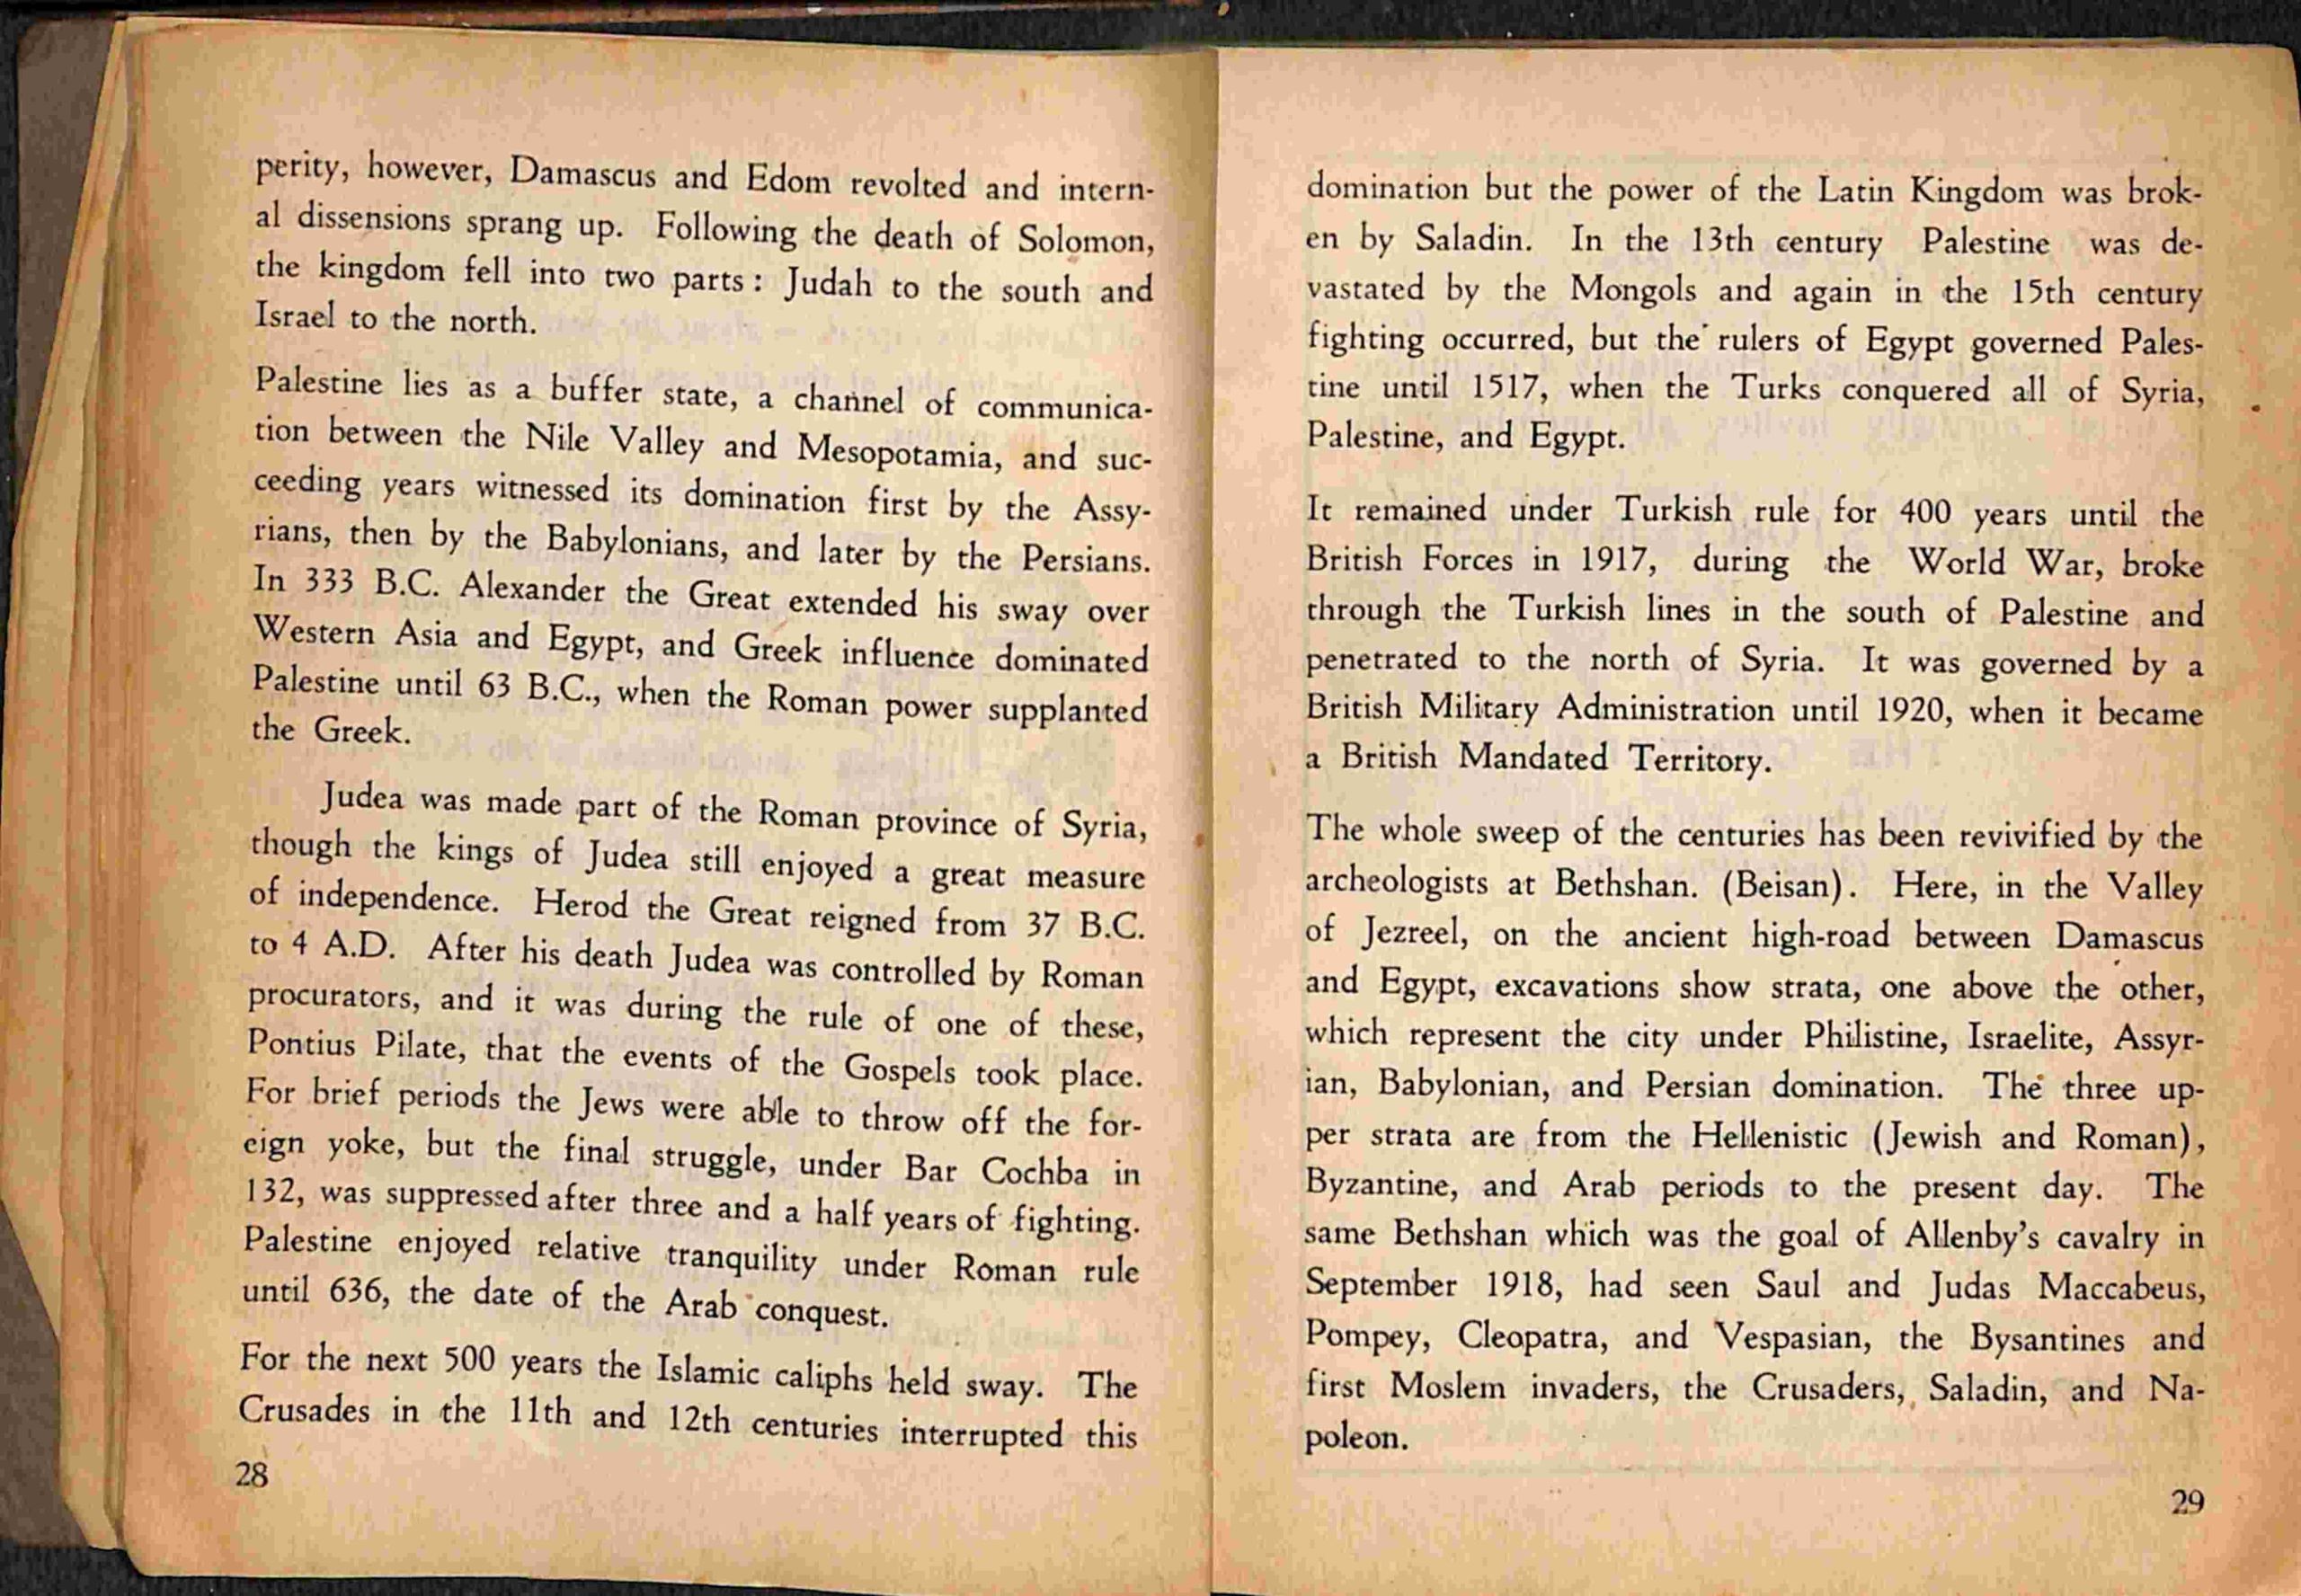 perity, however, Damascus and Edom revolted and intern-
al dissensions sprang up. Following the death of Solomon,
the kingdom fell into two parts: Judah to the south and
Israel to the north.
Palestine lies as a buffer state, a channel of communica-
tion between the Nile Valley and Mesopotamia, and suc-
ceeding years witnessed its domination first by the Assy-
rians, then by the Babylonians, and later by the Persians.
In 333 B.C. Alexander the Great extended his sway over
Western Asia and Egypt, and Greek influence dominated
Palestine until 63 B.C., when the Roman power supplanted
the Greek.
Judea was made part of the Roman province of Syria,
though the kings of Judea still enjoyed a great measure
of independence. Herod the Great reigned from 37 B.C.
to 4 A.D. After his death Judea was controlled by Roman
procurators, and it was during the rule of one of these,
Pontius Pilate, that the events of the Gospels took place.
For brief periods the Jews were able to throw off the for-
eign yoke, but the final struggle, under Bar Cochba in
132, was suppressed after three and a half years of fighting.
Palestine enjoyed relative tranquility under Roman rule
until 636, the date of the Arab conquest.
For the next 500 years the Islamic caliphs held sway. The
Crusades in the 11th and 12th centuries interrupted this
28
domination but the power of the Latin Kingdom was brok-
en by Saladin. In the 13th century Palestine was de-
vastated by the Mongols and again in the 15th century
fighting occurred, but the rulers of Egypt governed Pales-
tine until 1517, when the Turks conquered all of Syria,
Palestine, and Egypt.
It remained under Turkish rule for 400 years until the
British Forces in 1917, during the World War, broke
through the Turkish lines in the south of Palestine and
penetrated to the north of Syria. It was governed by a
British Military Administration until 1920, when it became
a British Mandated Territory.
The whole sweep of the centuries has been revivified by the
archeologists at Bethshan. (Beisan). Here, in the Valley
of Jezreel, on the ancient high-road between Damascus
and Egypt, excavations show strata, one above the other,
which represent the city under Philistine, Israelite, Assyr-
ian, Babylonian, and Persian domination. The three up-
per strata are from the Hellenistic (Jewish and Roman),
Byzantine, and Arab periods to the present day. The
same Bethshan which was the goal of Allenby's cavalry in
September 1918, had seen Saul and Judas Maccabeus,
Pompey, Cleopatra, and Vespasian, the Bysantines and
first Moslem invaders, the Crusaders, Saladin, and Na-
poleon.
29